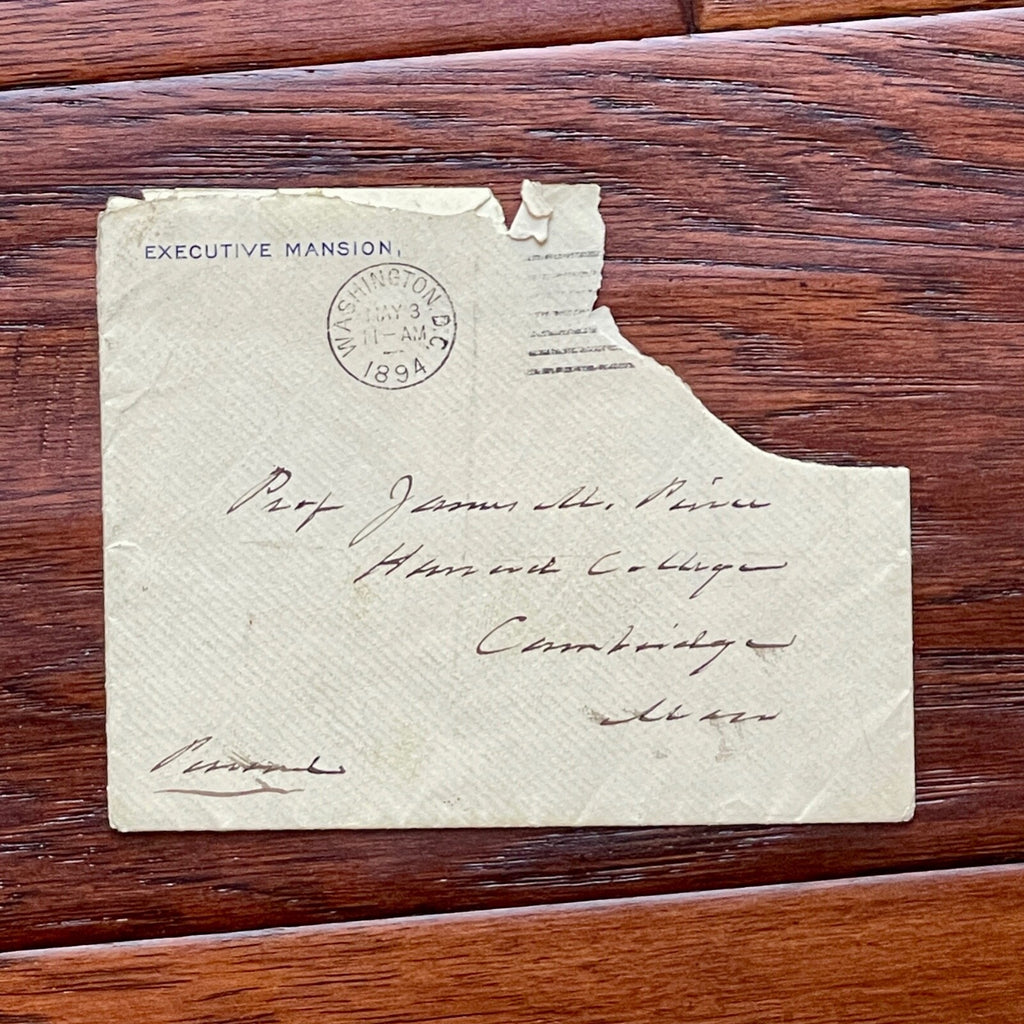 EXECUTIVE MANSION,
WASHINGTON, D.C.
MAY 3
11-AM
1894
Prof James M. Peirce
Harvard College
Cambridge
Mass
Personal